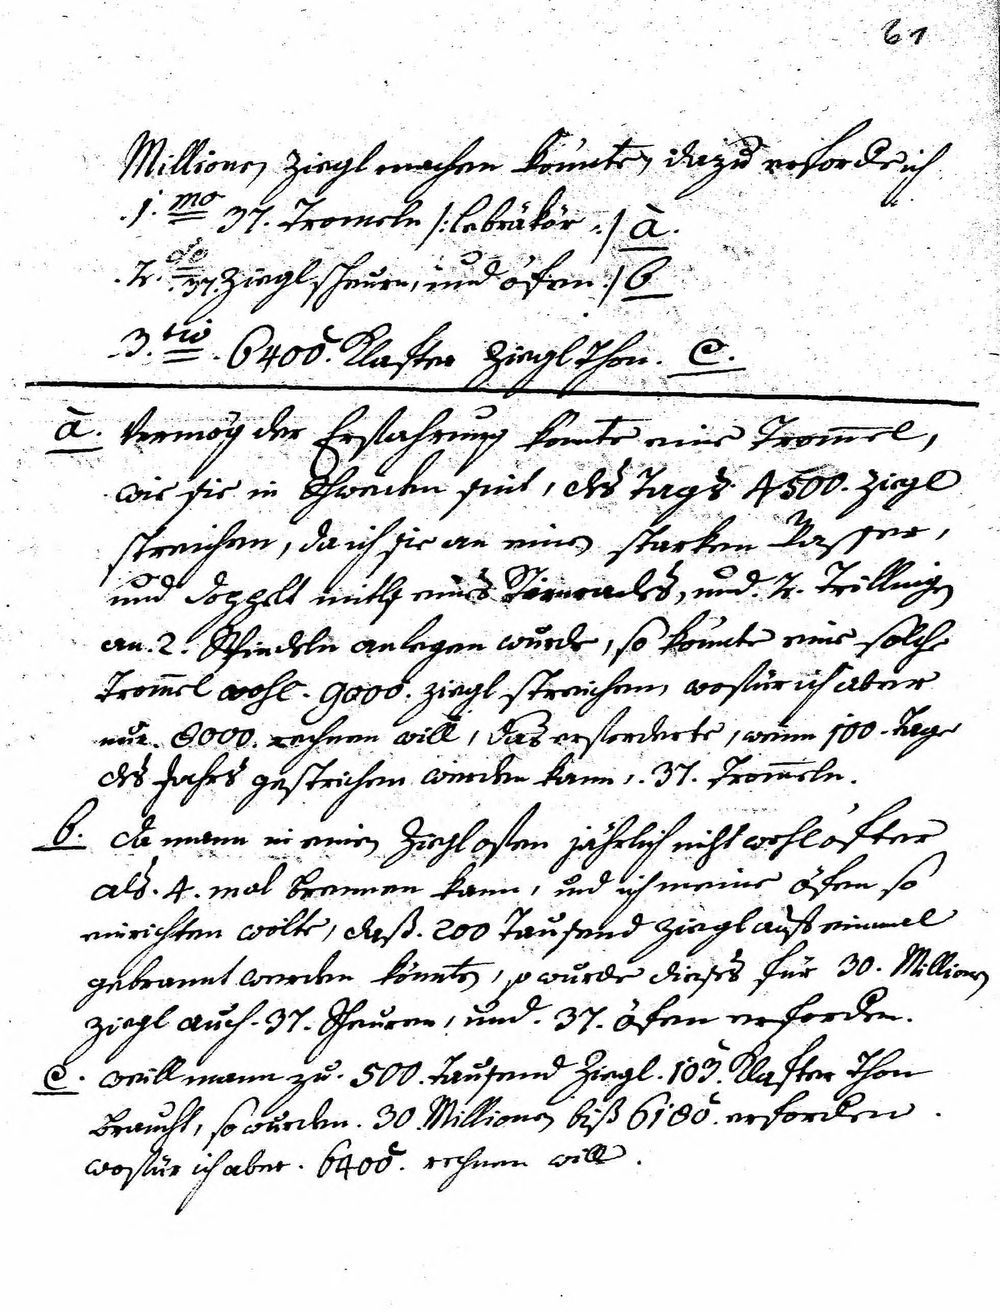 61
Millionen Ziegl machen könnte, dazu erforde ich
.1. mo 37. Tromeln /: Lebräkör :/ à.
.2. do 37 Ziegl scheuren, und öfen :/ b
.3. tio . 6400. Klafter Ziegl Thon. C.
à. Vermög der Erfahrung konnte eine Trom̄el,
wie sie in Schweden sint, des Tags. 4500. Ziegl
streichen, da ich sie an einen starken Wasser,
und doppelt mitls eines Stirnrades, und. 2. Trilling
an. 2. Spindeln anlegen wurde, so könnte eine solche
Trom̄el wohl. 9000. Ziegl streichen, wofür ich aber
nur. 8000. rechnen will, das erforderte, wenn 100. Tage
des Jahrs gestrichen werden kann, . 37. Trom̄eln.
b. da mann in einen Zieglofen jährlich nicht wohl öfter
als. 4. mal brennen kann, und ich meine öfen so
einrichten wolte, daß. 200 Tausend Ziegl auf einmal
gebrannt werden könnten, so wurde dieses für 30. Millionen
Ziegl auch. 37. Scheuren, und. 37. öfen erforden.
C. weill mann zu. 500. Tausend Ziegl. 103. Klafter Thon
braucht, so wurden. 30 Millionen biß 6180. erforden.
wofür ich aber. 6400. rechnen will.